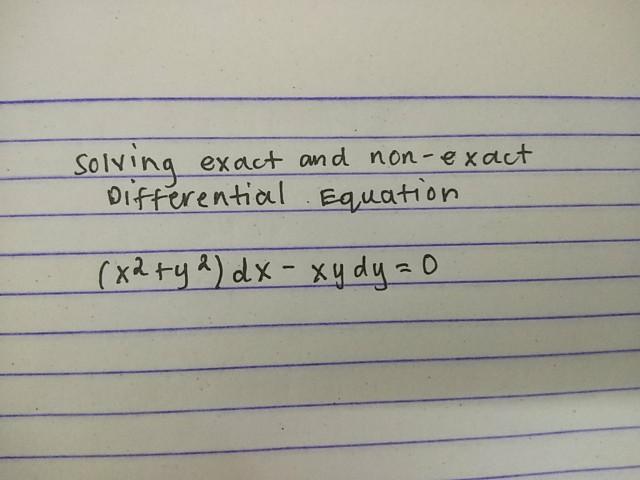 solving exact and non-exact
Differential Equation
(x²+y²)dx - xydy = 0